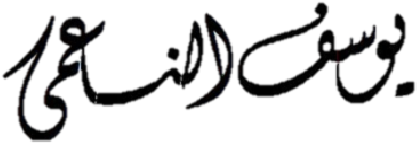 يوسف الناعمي